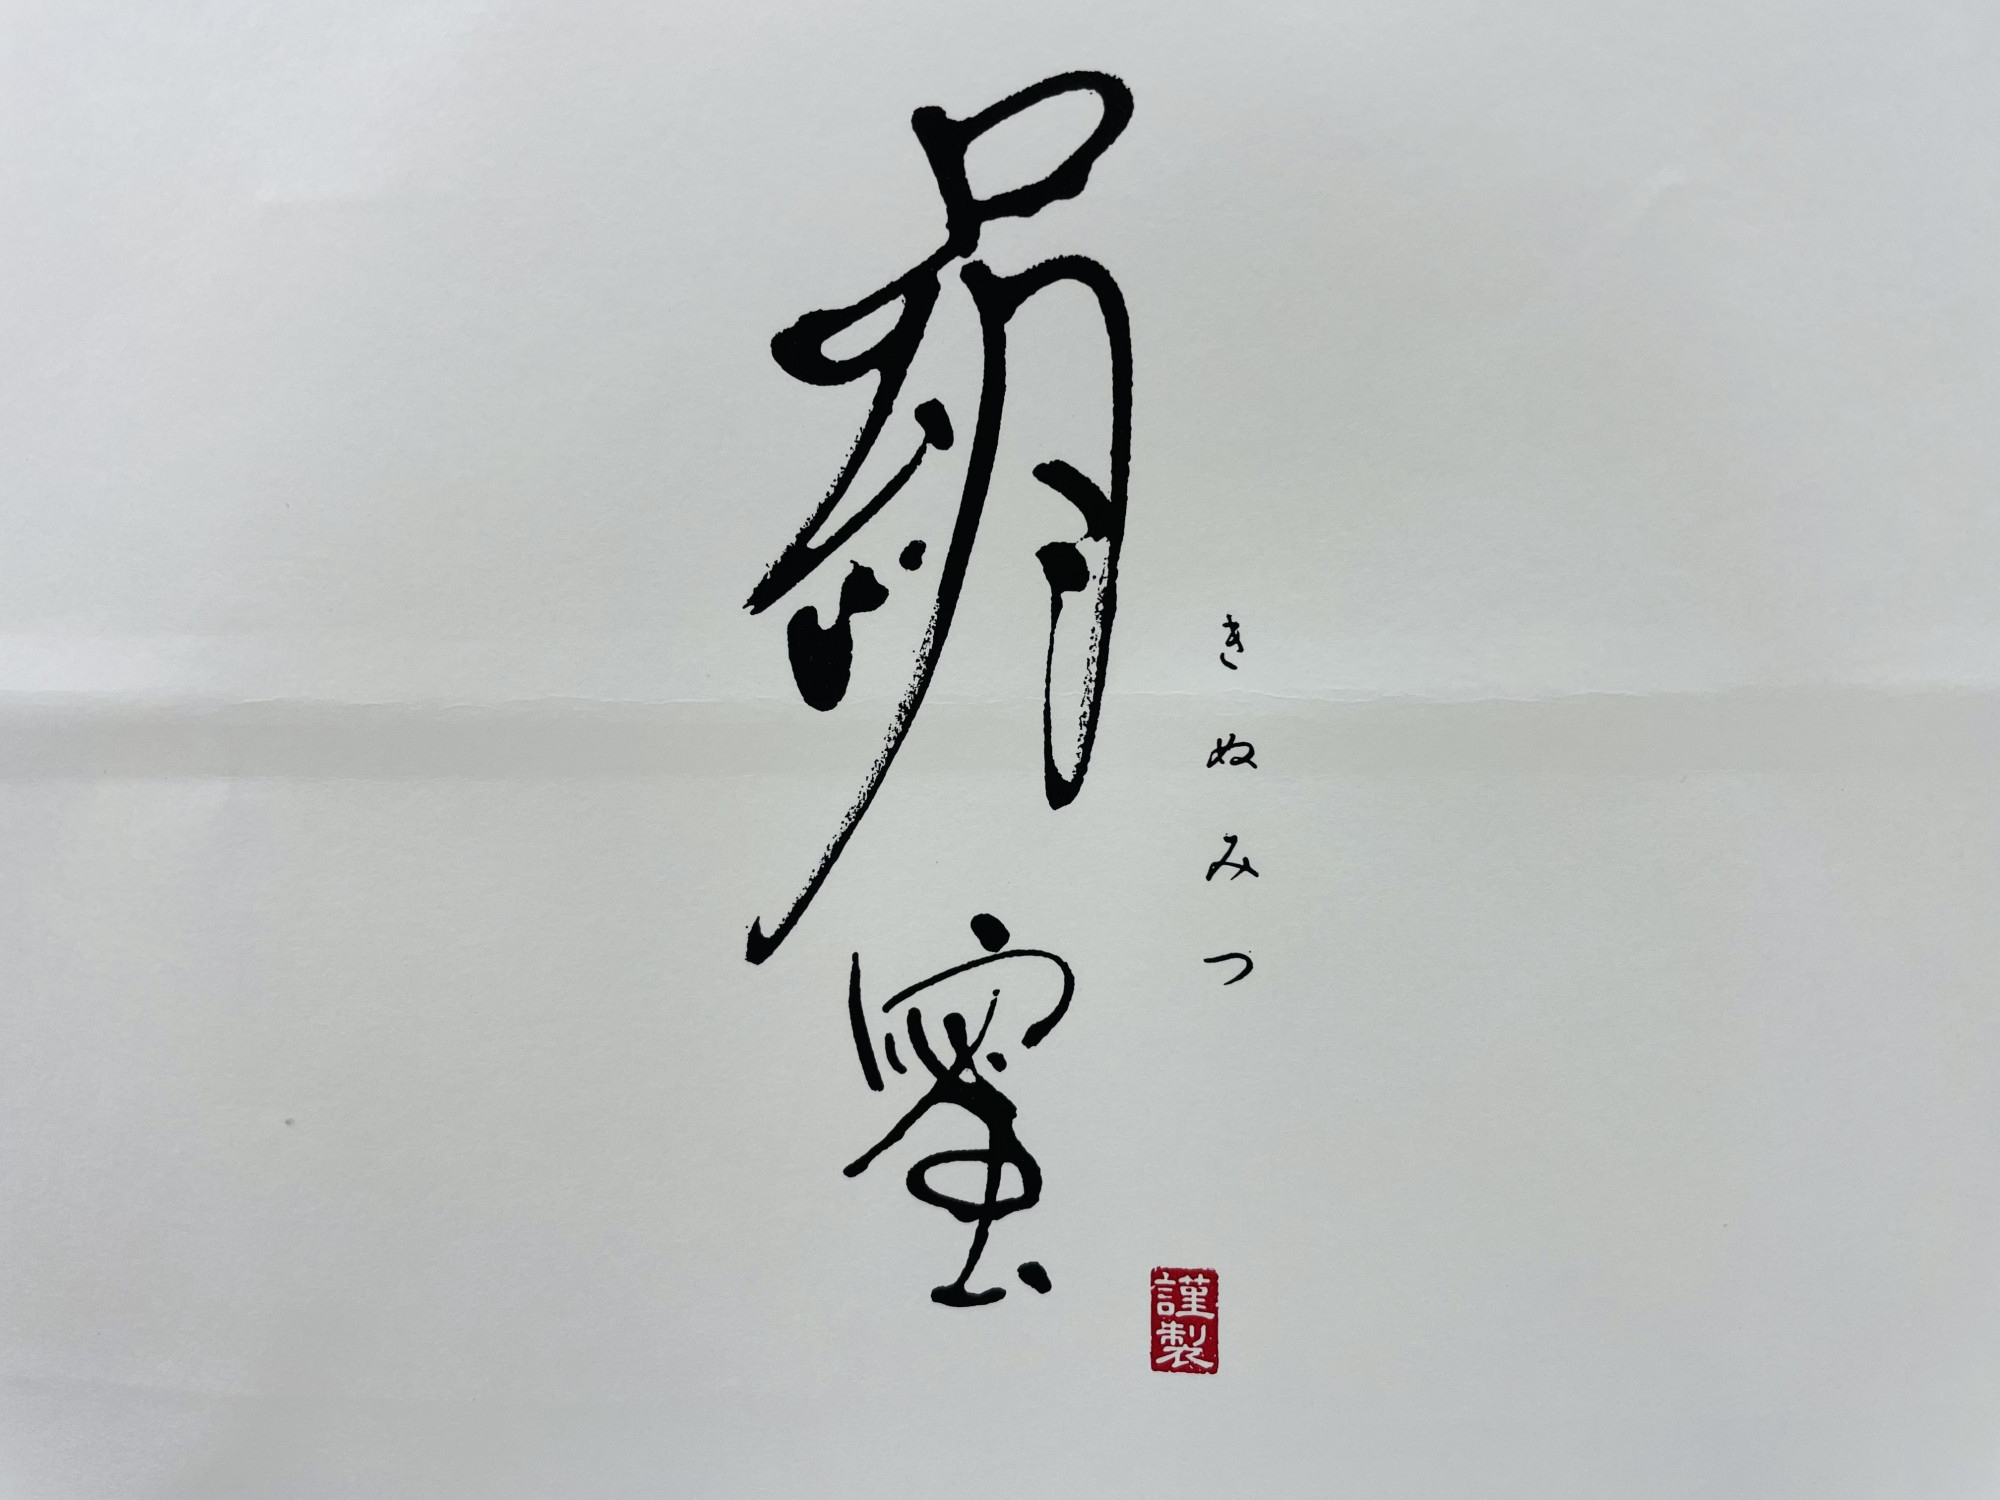 絹蜜
きぬみつ
謹製